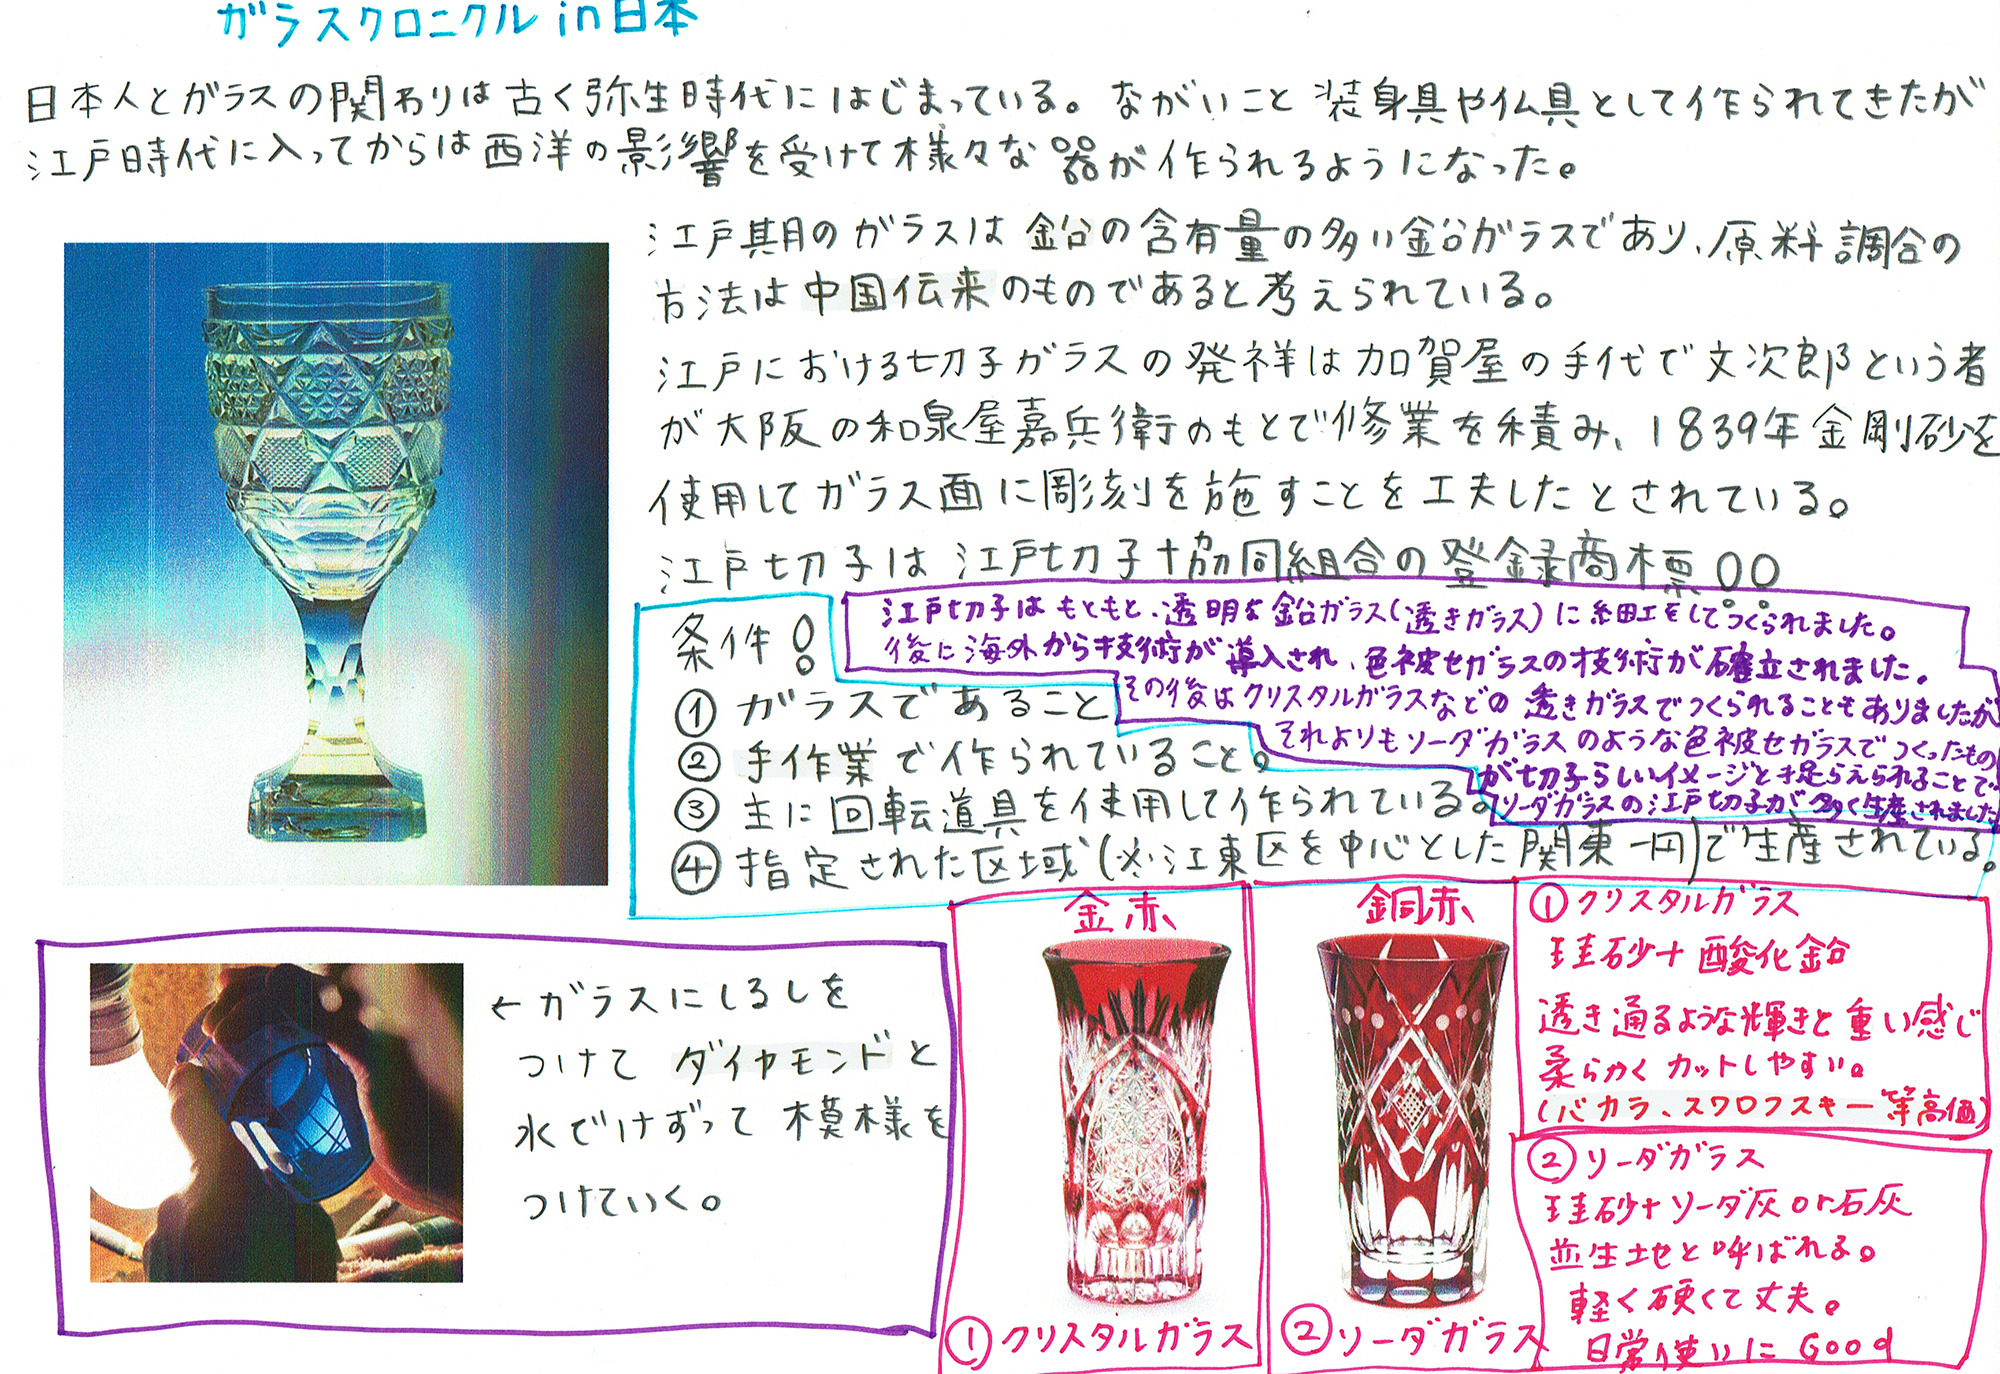 ガラスクロニクルin日本
日本人とガラスの関わりは古く弥生時代にはじまっている。ながいこと装身具や仏具として作られてきたが
江戸時代に入ってからは西洋の影響を受けて様々な器が作られるようになった。
江戸期のガラスは鉛の含有量の多い鉛ガラスであり、原料調合の
方法は中国伝来のものであると考えられている。
江戸における切子ガラスの発祥は加賀屋の手代で文次郎という者
が大阪の和泉屋嘉兵衛のもとで修業を積み、1839年金剛砂を
使用してガラス面に彫刻を施すことを工夫したとされている。
江戸切子は江戸切子協同組合の登録商標!!
条件!
①ガラスであること
②手作業で作られていること。
③主に回転道具を使用して作られている。
④指定された区域(※江東区を中心とした関東一円)で生産されている。
江戸切子はもともと、透明な鉛ガラス(透きガラス)に細工をしてつくられました。
後に海外から技術が導入され、色被せガラスの技術が確立されました。
その後はクリスタルガラスなどの透きガラスでつくられることもありましたが
それよりもソーダガラスのような色被せガラスでつくったもの
が切子らしいイメージと捉らえられることで
ソーダガラスの江戸切子が多く生産されました
←ガラスにしるしを
つけてダイヤモンドと
水でけずって模様を
つけていく。
金赤
①クリスタルガラス
銅赤
②ソーダガラス
①クリスタルガラス
珪砂+酸化鉛
透き通るような輝きと重い感じ
柔らかくカットしやすい。
(バカラ、スワロフスキー等高価)
②ソーダガラス
珪砂+ソーダ灰or石灰
並生地と呼ばれる。
軽く硬くて丈夫。
日常使いにGood